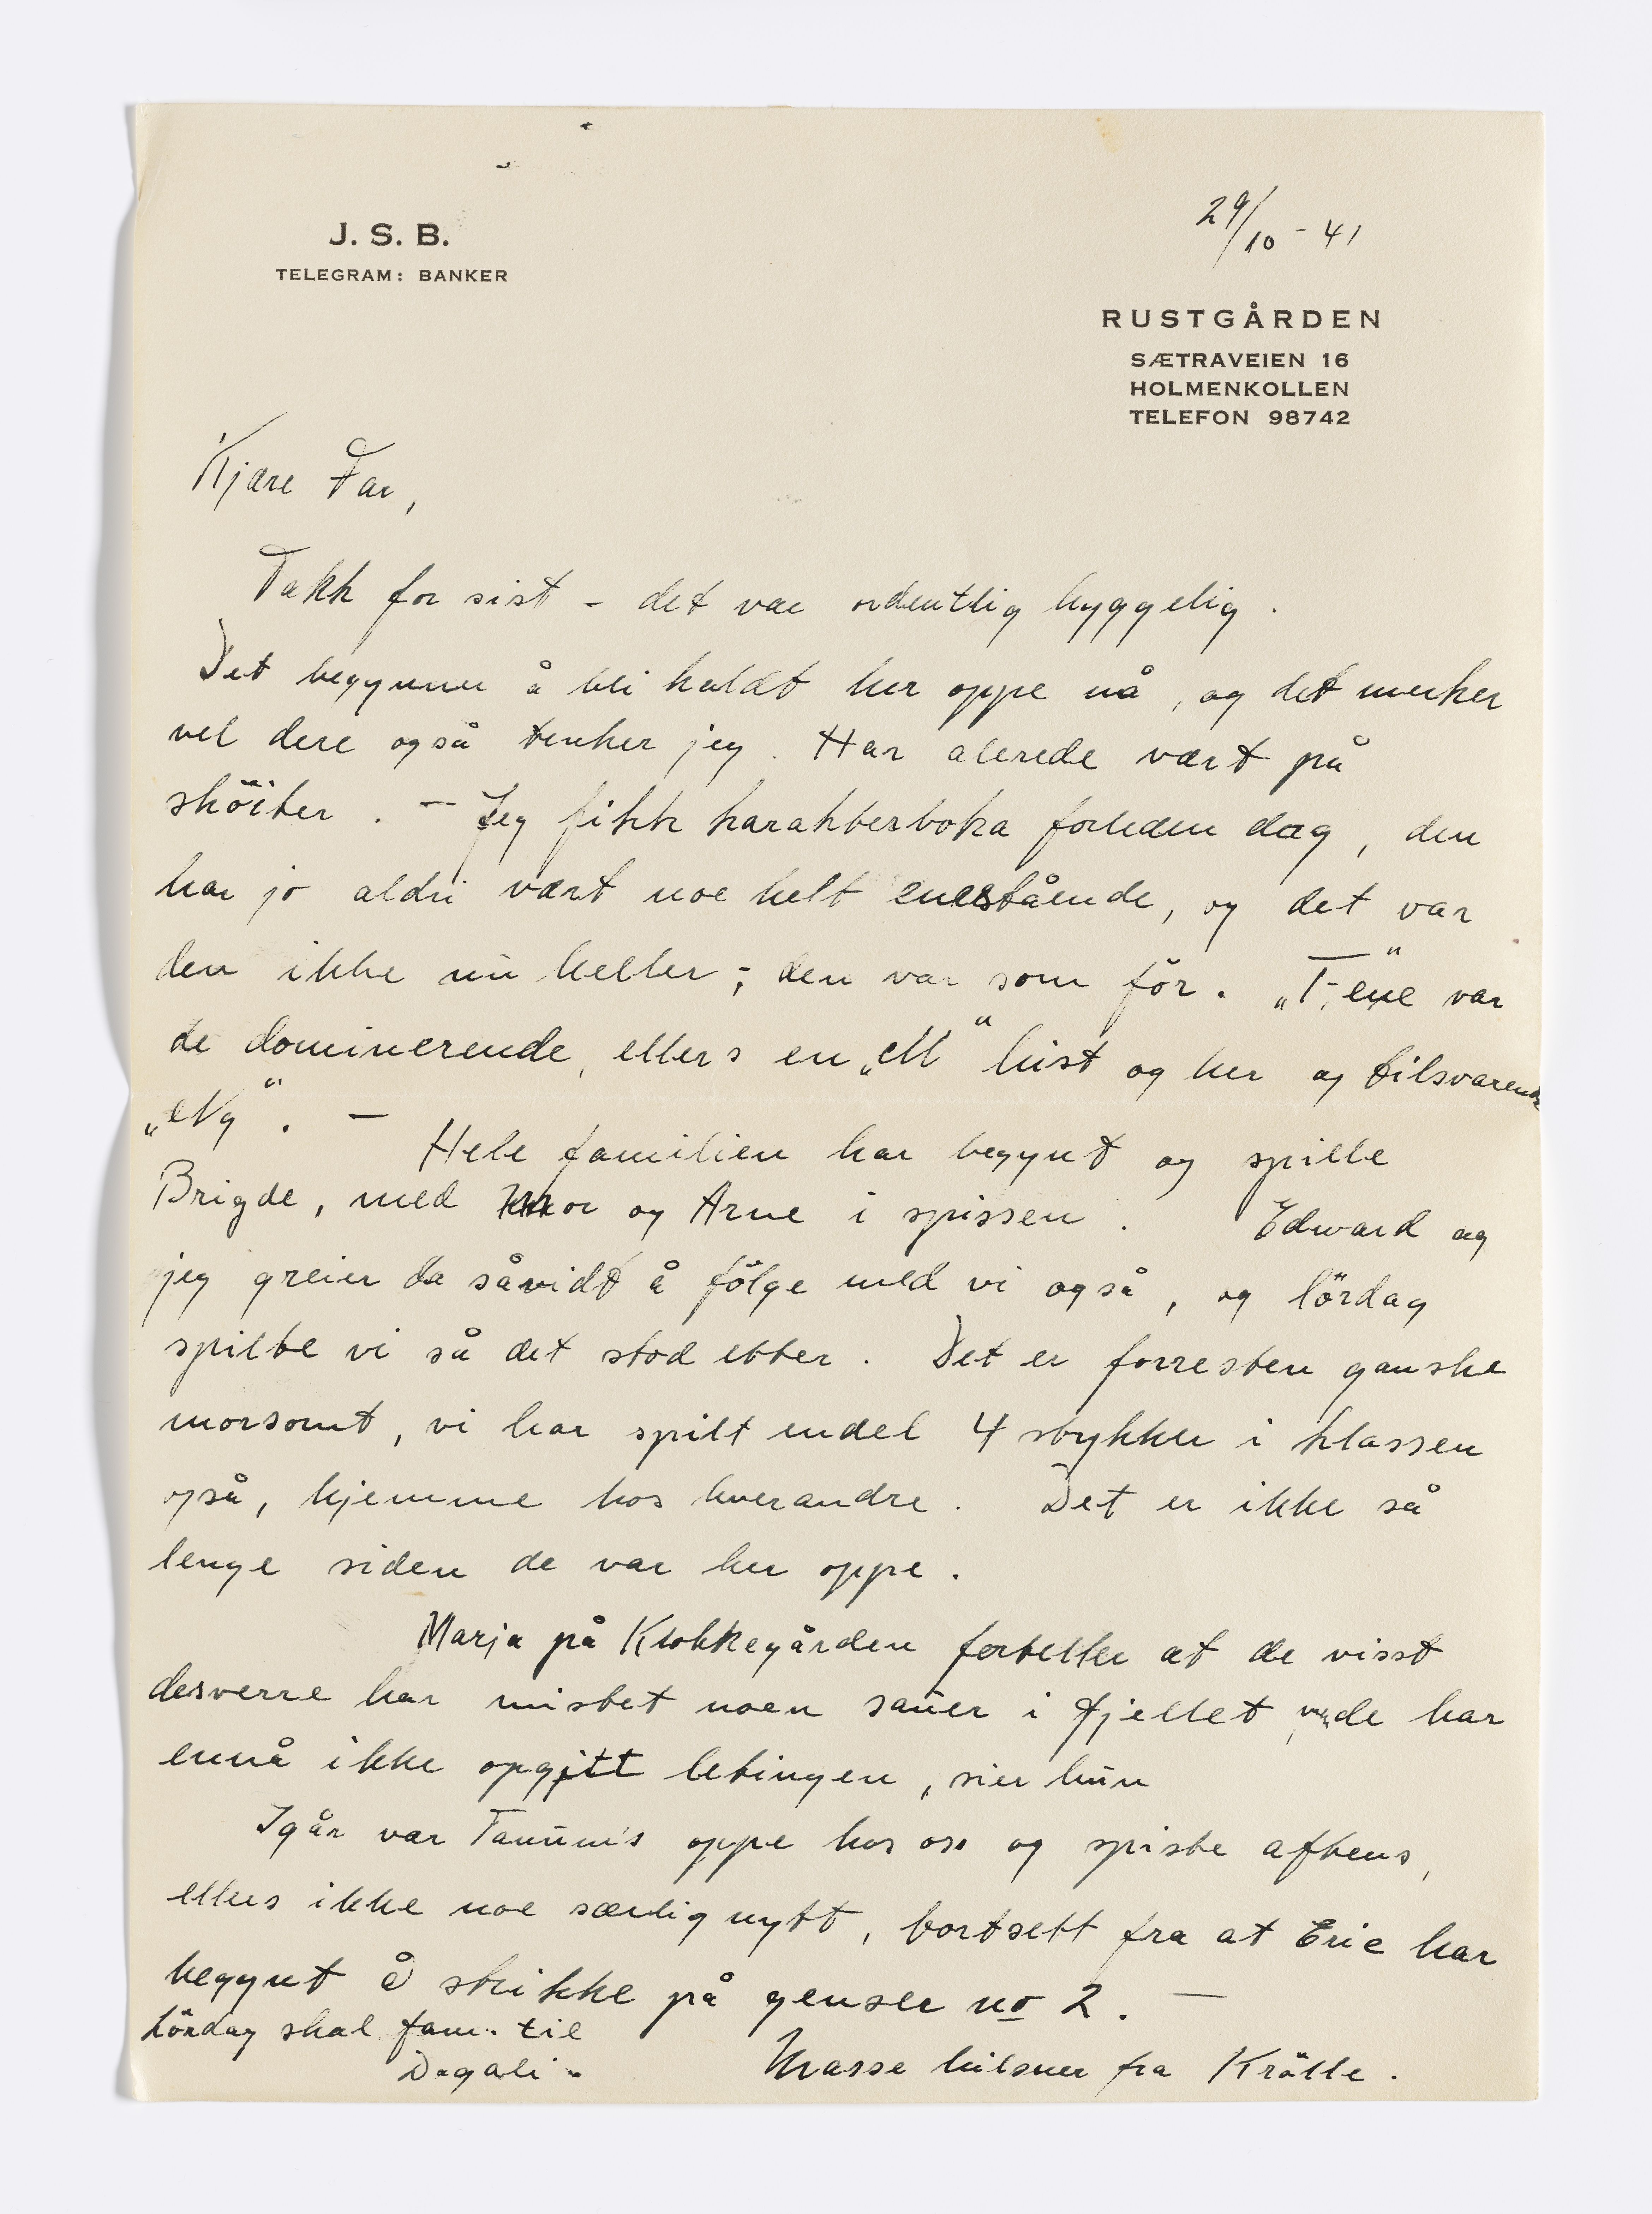 J. S. B.
TELEGRAM: BANKER
29/10 - 41
RUSTGÅRDEN
SÆTRAVEIEN 16
HOLMENKOLLEN
TELEFON 98742
Kjære Far,
Takk for sist - det var ordentlig hyggelig.
Det begynner å bli kaldt her oppe nå, og det merker
vel dere også tenker jeg. Har alerede vært på
sköiter. - Jeg fikk karakterboka forleden dag, den
har jo aldri vært noe helt enestående, og det var
den ikke nu heller; den var som för. „T"-ene var
de dominerende, ellers en „M" hist og her og tilsvarende
„Ng". -
Hele familien har begynt og spille
Brigde, med Mor og Arne i spissen. Edward og
jeg greier da såvidt å fölge med vi også, og lördag
spilte vi så det stod etter. Det er forresten ganske
morsomt, vi har spilt endel 4 stykker i klassen
også, hjemme hos hverandre. Det er ikke så
lenge siden de var her oppe.
Marja på Klokkegården forteller at de visst
desverre har mistet noen sauer i fjellet, de har
ennå ikke opgitt letingen, sier hun
Igår var Tanum's oppe hos oss og spiste aftens,
ellers ikke noe særlig nytt, bortsett fra at Eric har
begynt å strikke på genser no 2. -
Lördag skal fam. til
Dagali -
Masse hilsner fra Krölle.